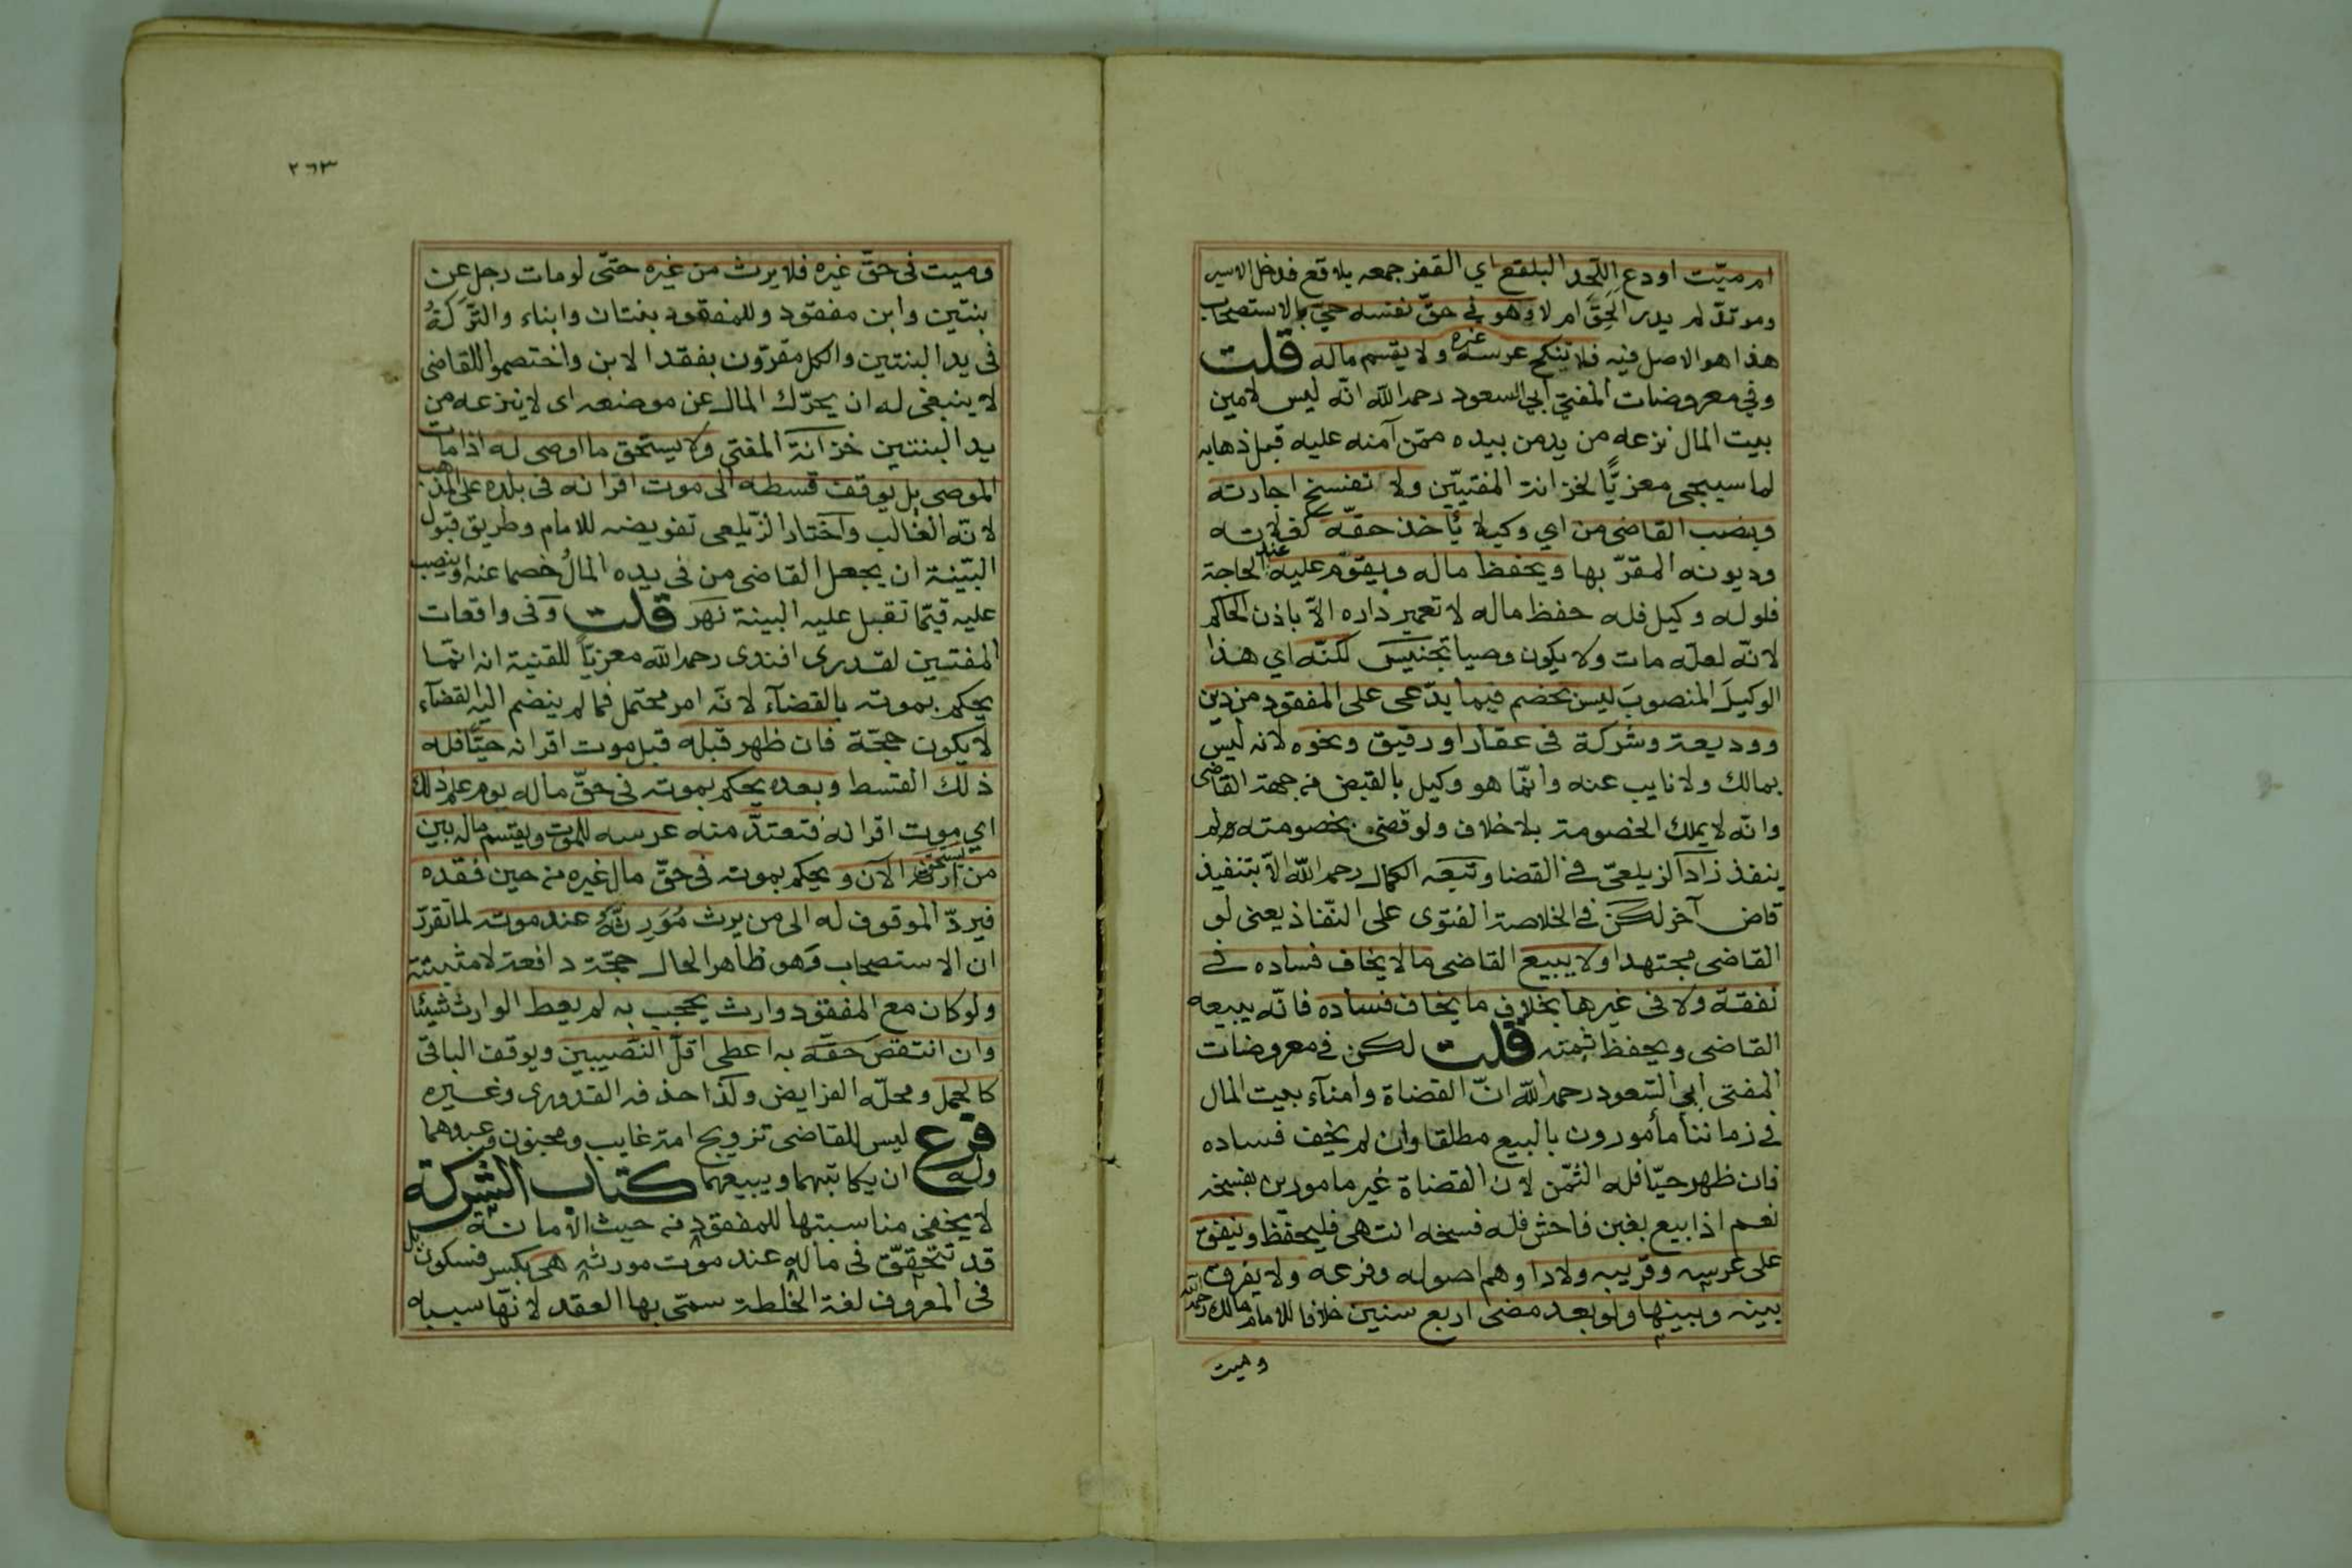 ام ميّت اودع اللّحد البلقع اي القفر جمعه بلاقع فدخل الاسير
ومرتدّ لم يدر الحق ام لا وهو في حقّ نفسه حيّ بالاستصحاب
هذا هو الاصل فيه فلا ينكح عرسه غيره ولا يقسم ماله قلت
وفي معروضات المفتي ابي السعود رحمه الله انّه ليس لامين
بيت المال نزعه من يد من بيده ممّن آمنه عليه قبل ذهابه
لما سيجي معزيًّا لخزانة المفتيين ولا تفسخ اجارته
وينصب القاضي من اي وكيلا يأخذ حقّه كغلاته
وديونه المقرّ بها ويحفظ ماله ويقوّم عليه عند الحاجة
فلو له وكيل فله حفظ ماله لا تعمير داره الاّ باذن الحاكم
لانّه لعلّه مات ولا يكون وصيا تجنيس لكنّه اي هذا
الوكيل المنصوب ليس بخصم فيما يدّعى على المفقود من دين
ووديعة وشركة في عقار او رقيق ونحوه لانه ليس
بمالك ولا نايب عنه وانّما هو وكيل بالقبض من جهة القاضي
وانّه لا يملك الخصومة بلا خلاف ولو قضى بخصومته لم
ينفذ زاد الزيلعيّ في القضا وتبعه الكمال رحمه الله الاّ بتنفيذ
قاض آخر لكن في الخلاصة الفتوى على النّفاذ يعنى لو
القاضى مجتهدا ولا يبيع القاضى مالا يخاف فساده في
نفقة ولا فى غيرها بخلاف ما يخاف فساده فانّه يبيعه
القاضى ويحفظ ثمنه قلت لكن في معروضات
المفتى ابي السّعود رحمه الله انّ القضاة وامنآء بيت المال
في زماننا مأمورون بالبيع مطلقا وان لم يخف فساده
فان ظهر حيّا فله الثّمن لان القضاة غير مامورين بفسخه
نعم اذا بيع بغبن فاحش فله فسخه انتهى فليحفظ وينفق
على عرسه وقريبه ولادا وهم اصوله وفرعه ولا يفرق
بينه وبينها ولو بعد مضى اربع سنين خلافا للامام مالك رحمه الله
وميت
٢٦٣
وميت فى حقّ غيره فلا يرث من غيره حتّى لو مات رجل عن
بنتين وابن مفقود وللمفقود بنتان وابناء والتّركةُ
فى يد البنتين والكل مقرّون بفقد الابن واختصموا للقاضى
لا ينبغى له ان يحرّك المال عن موضعه اى لا ينزعه من
يد البنتين خزانة المفتى ولا يستحق ما اوصى له اذا مات
الموصى بل يوقف قسطه الى موت اقرانه فى بلده على المذهب
لانّه الغالب واختار الزّيلعى تفويضه للامام وطريق قبول
البيّنة ان يجعل القاضى من فى يده المالُ خصما عنه او ينصب
عليه قيّما تقبل عليه البينة نهر قلت وفى واقعات
المفتيين لقدرى افندى رحمه الله معزيّا للقنية انه انّما
يحكم بموته بالقضآء لانّه امر محتمل فما لم ينضم اليه القضآء
لا يكون حجّة فان ظهر قبله قبل موت اقرانه حيّا فله
ذلك القسط وبعده يحكم بموته فى حقّ ماله يوم علم ذلك
اي موت اقرانه فتعتدّ منه عرسه للموت ويقسم ماله بين
من يستحق ارثه الآن ويحكم بموته فى حقّ مال غيره من حين فقده
فيردّ الموقوف له الى من يرث مُوَرِثه عند موته لما تقرّر
ان الاستصحاب وهو ظاهر الحال حجّة دافعة لا مثبتة
ولو كان مع المفقود وارث يحجب به لم يعط الوارث شيئا
وان انتقص حقّه به اعطى اقلّ النّصيبين ويوقف الباقى
كالحمل ومحلّه الفرايض ولذا حذفه القدورى وغيره
فرع ليس للقاضى تزويج امة غايب ومجنون وعبدهما
وله ان يكاتبهما ويبيعهما كتاب الشركة
لا يخفى مناسبتها للمفقود من حيث الامانة بل
قد تتحقّق فى ماله عند موت مورثه هي بكسر فسكون
فى المعروف لغة الخلطة سمّى بها العقد لانّها سببه